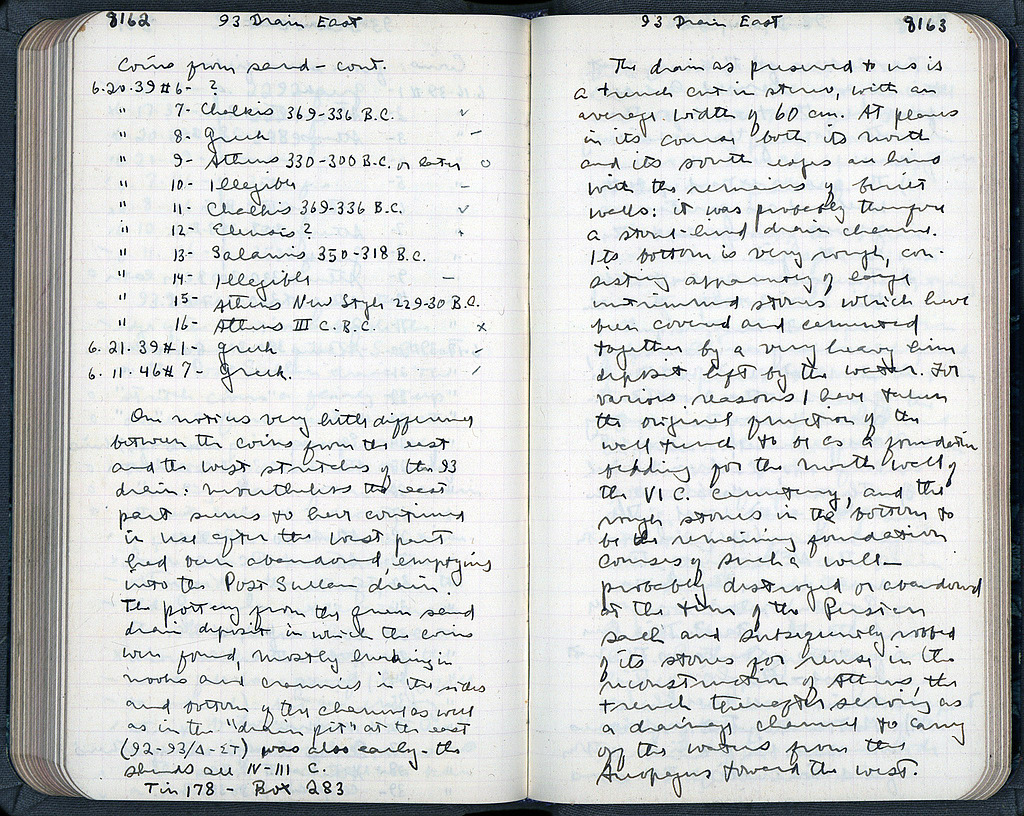 8162 93 Drain East
Coins from sand - cont.
6.20.39 #6- ?
" 7- Chalkis 369-336 B.C. v
" 8- Greek –
" 9- Athens 330-300 B.C. or later o
" 10- Illegible –
" 11- Chalkis 369-336 B.C. v
" 12- Eleusis ?
" 13- Salamis 350-318 B.C.
" 14- Illegible –
" 15- Athens New Style 229-30 B.C.
" 16- Athens III C. B.C. x
6.21.39 #1- Greek –
6.11.46 #7- Greek.
One notices very little difference
between the coins from the east
and the west stretches of the 93
drain: nonetheless the east
part seems to have continued
in use after the west part
had been abandoned, emptying
into the Post Sullan drain.
The pottery from the green sand
drain deposit in which the coins
were found, mostly lurking in
nooks and crannies in the sides
and bottom of the channel as well
as in the "drain pit" at the east
(92-93/Δ-ΣΤ) was also early - the
sherds are IV-III C.
Tin 178 - Box 283
93 Drain East 8163
The drain as preserved to us is
a trench cut in stereo, with an
average width of 60 cm. At places
in its course both its north
and its south edges are lined
with the remains of built
walls: it was probably therefore
a stone-lined drain channel.
Its bottom is very rough, con-
sisting apparently of large
untrimmed stones which have
been covered and cemented
together by a very heavy lime
deposit left by the water. For
various reasons I have taken
the original function of the
wall trench to be as a foundation
bedding for the north wall of
the VI C. cemetery, and the
rough stones in the bottom to
be the remaining foundation
courses of such a wall -
probably destroyed or abandoned
at the time of the Persian
sack and subsequently robbed
of its stones for reuse in the
reconstruction of Athens, the
trench thereafter serving as
a drainage channel to carry
off the waters from the
Areopagus toward the west.